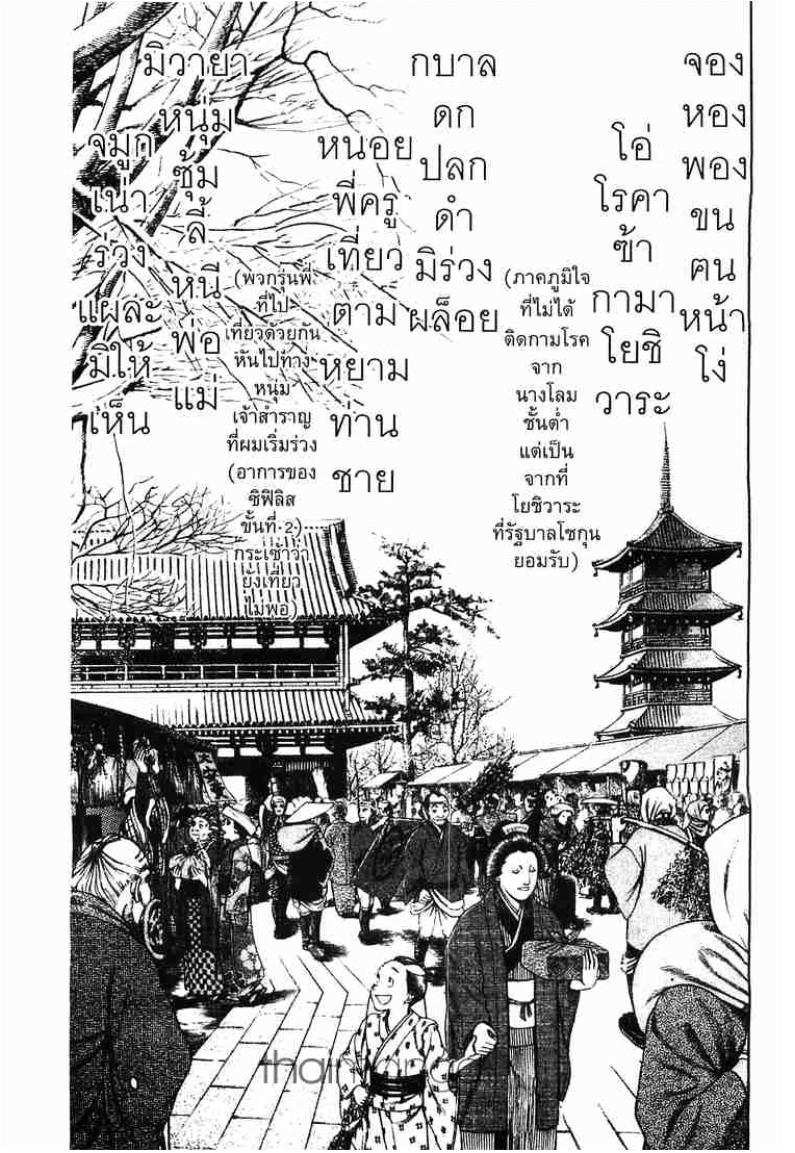 จอง
หอง
พอง
ขน
ฅน
หน้า
โง่
โอ่
โรคา
ฃ้า
กามา
โยชิ
วาระ
(ภาคภูมิใจ
ที่ไม่ได้
ติดกามโรค
จาก
นางโลม
ชั้นต่ำ
แต่เป็น
จากที่
โยชิวาระ
ที่รัฐบาลโชกุน
ยอมรับ)
กบาล
ดก
ปลก
ดำ
มิร่วง
ผล็อย
หนอย
พี่ครู
เที่ยว
ตาม
หยาม
ท่าน
ชาย
(พวกรุ่นพี่
ที่ไป
เที่ยวด้วยกัน
หันไปทาง
หนุ่ม
เจ้าสำราญ
ที่ผมเริ่มร่วง
(อาการของ
ซิฟิลิส
ขั้นที่ 2)
กระเซ้าว่า
ยังเที่ยว
ไม่พอ)
มิวายา
หนุ่ม
ซุ้ม
ลี้
หนี
พ่อ
แม่
จมูก
เน่า
ร่วง
แผละ
มิให้
เห็น